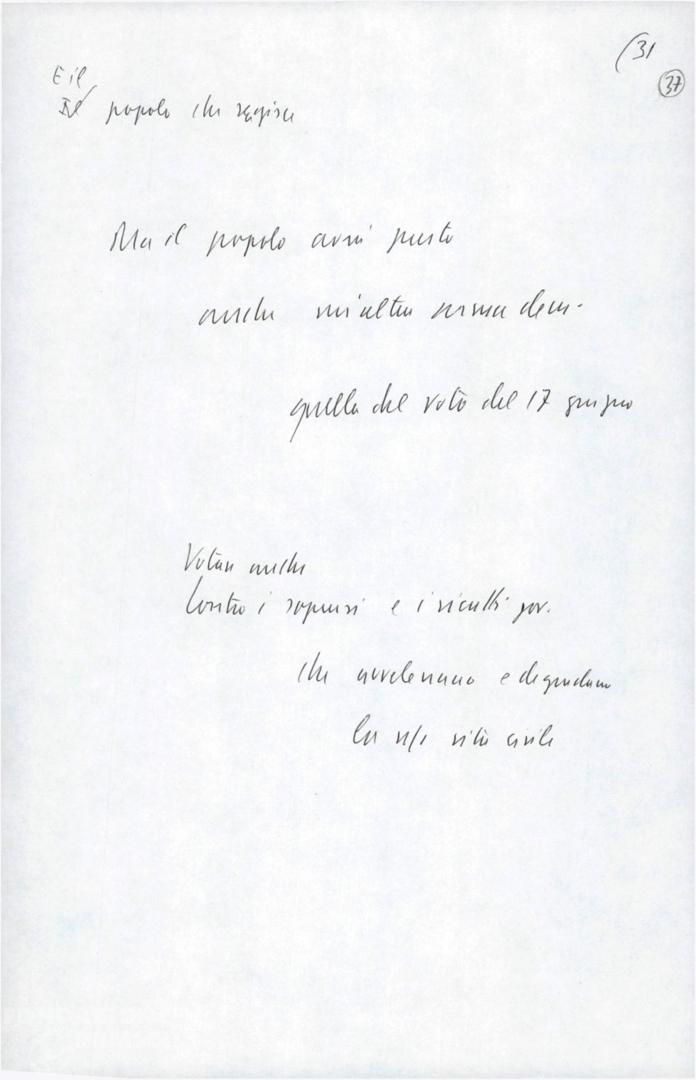 (31
37
E il
Il popolo che reagisce
Ma il popolo avrà presto
anche un'altra arma dem.
quella del voto del 17 giugno
Votare anche
Contro i soprusi e i ricatti gov.
che avvelenano e degradano
la n/s vita civile